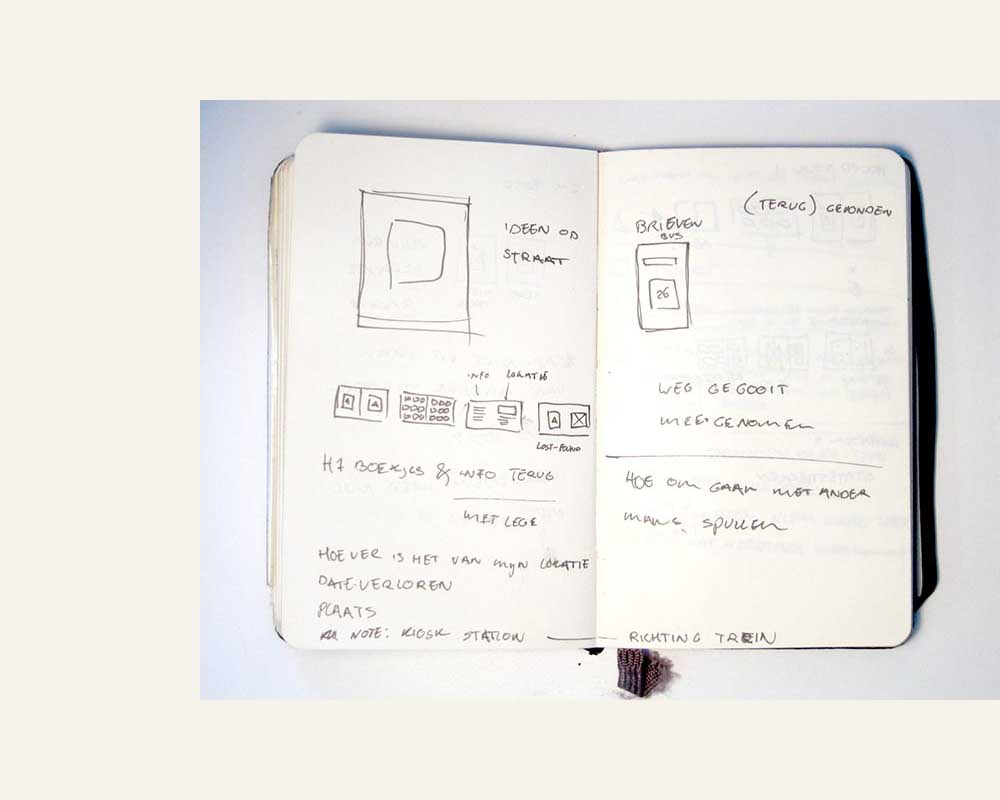 IDEEN OP
STRAAT
INFO LOKATIE
A
LOST-FOUND
BOEKJES & INFO TERUG
MET LEGE
HOE VER IS HET VAN MIJN LOKATIE
DATE-VERLOREN
PLAATS
NOTE: KIOSK STATION
(TERUG) GEVONDEN
BRIEVEN
BUS
26
WEG GEGOOIT
MEEGENOMEN
HOE OM GAAN MET ANDER
MANS SPULLEN
RICHTING TREIN